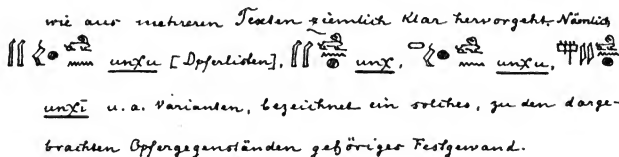 wie aus mehreren Texten ziemlich klar hervorgeht. Nämlich
unχu [Opferlisten], unχ, unχu,
unχī u. a. Varianten, bezeichnet ein solches, zu den darge-
brachten Opfergegenständen gehöriges Festgewand.